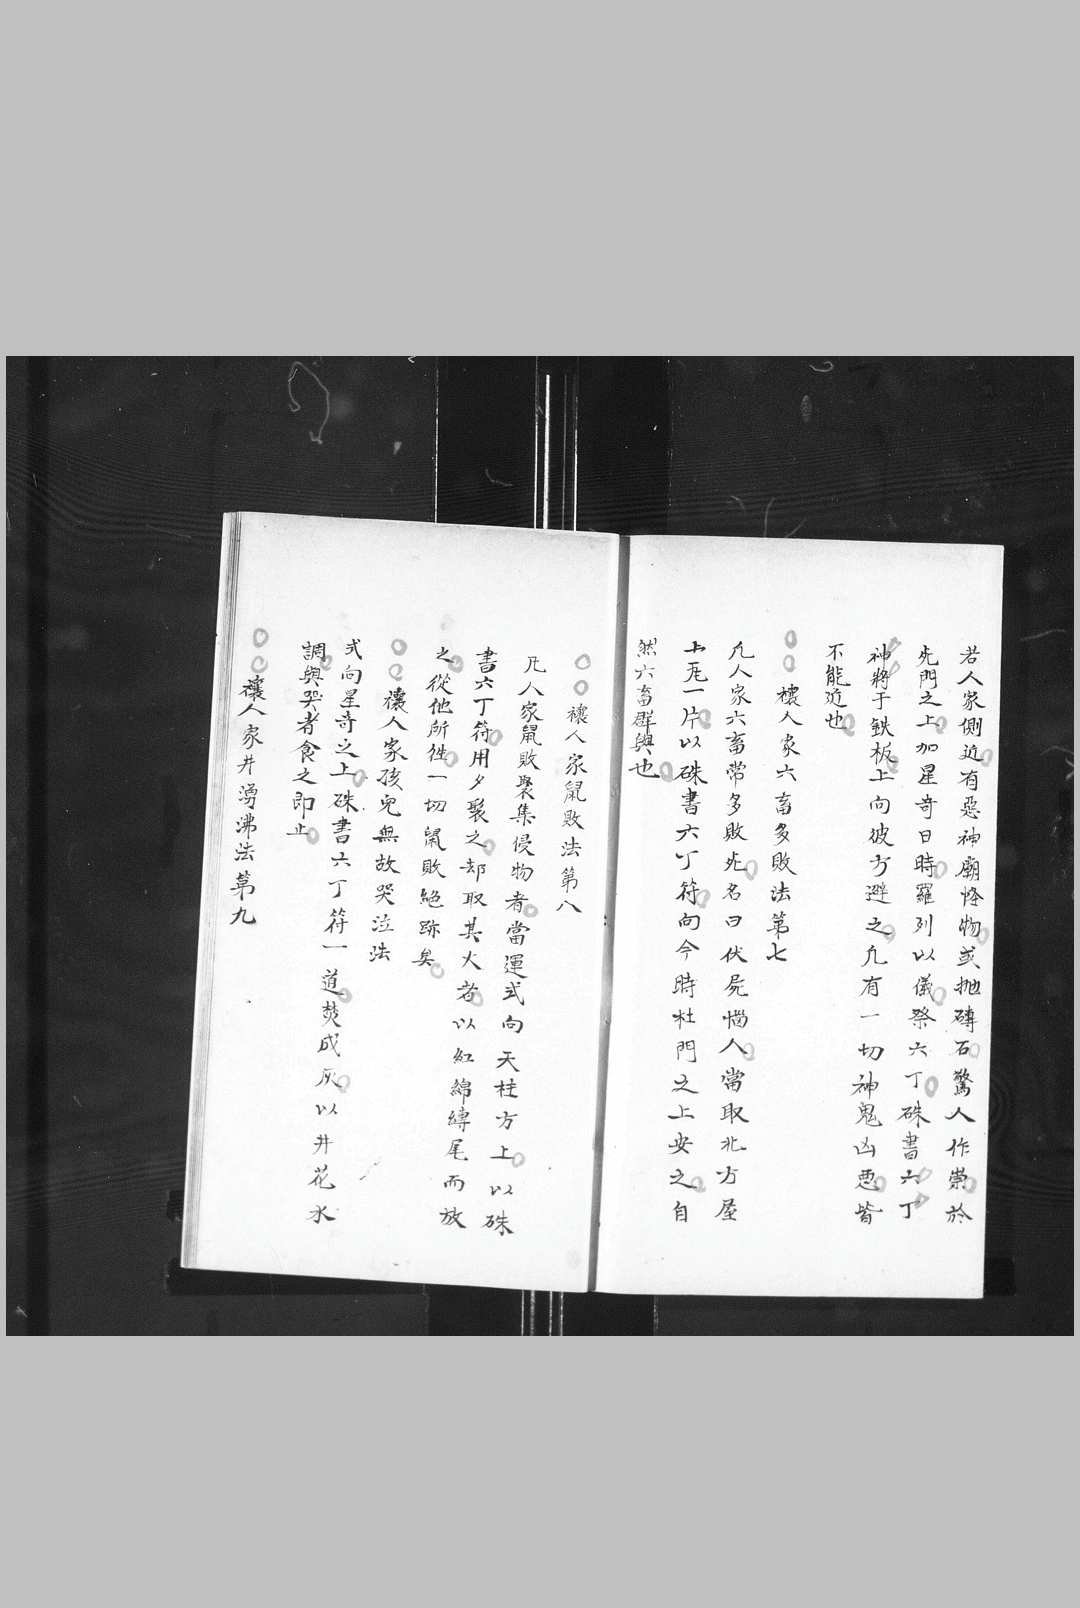 若人家側近有惡神廟恠物或抛磚石驚人作祟於
先門之上加星奇日時羅列以儀祭六丁硃書六丁
神將于鉄板上向彼方避之凢有一切神鬼凶悪皆
不能近也
禳人家六畜多敗法第七
凢人家六畜常多敗死名曰伏屍惱人當取北方屋
上瓦一片以硃書六丁符向今時杜門之上安之自
然六畜群興也
禳人家鼠敗法第八
凢人家鼠敗聚集侵物者當運式向天柱方上以硃
書六丁符用夕聚之却取其火者以紅綿縛尾而放
之從他所徃一切鼠敗絶跡矣
禳人家孩兒無故哭泣法
式向星奇之上硃書六丁符一道焚成灰以井花水
調與哭者食之即止
禳人家井湧沸法第九